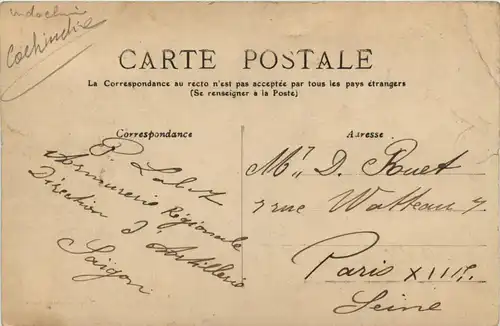 Indochine
Cochinchine
CARTE POSTALE
La Correspondance au recto n'est pas acceptée par tous les pays étrangers
(Se renseigner à la Poste)
Correspondance
P. Lalot
Armurerie Régionale
Direction d'Artillerie
Saïgon
Adresse
Mr D. Rouet
7 rue Watteau 7
Paris XIIIe
Seine